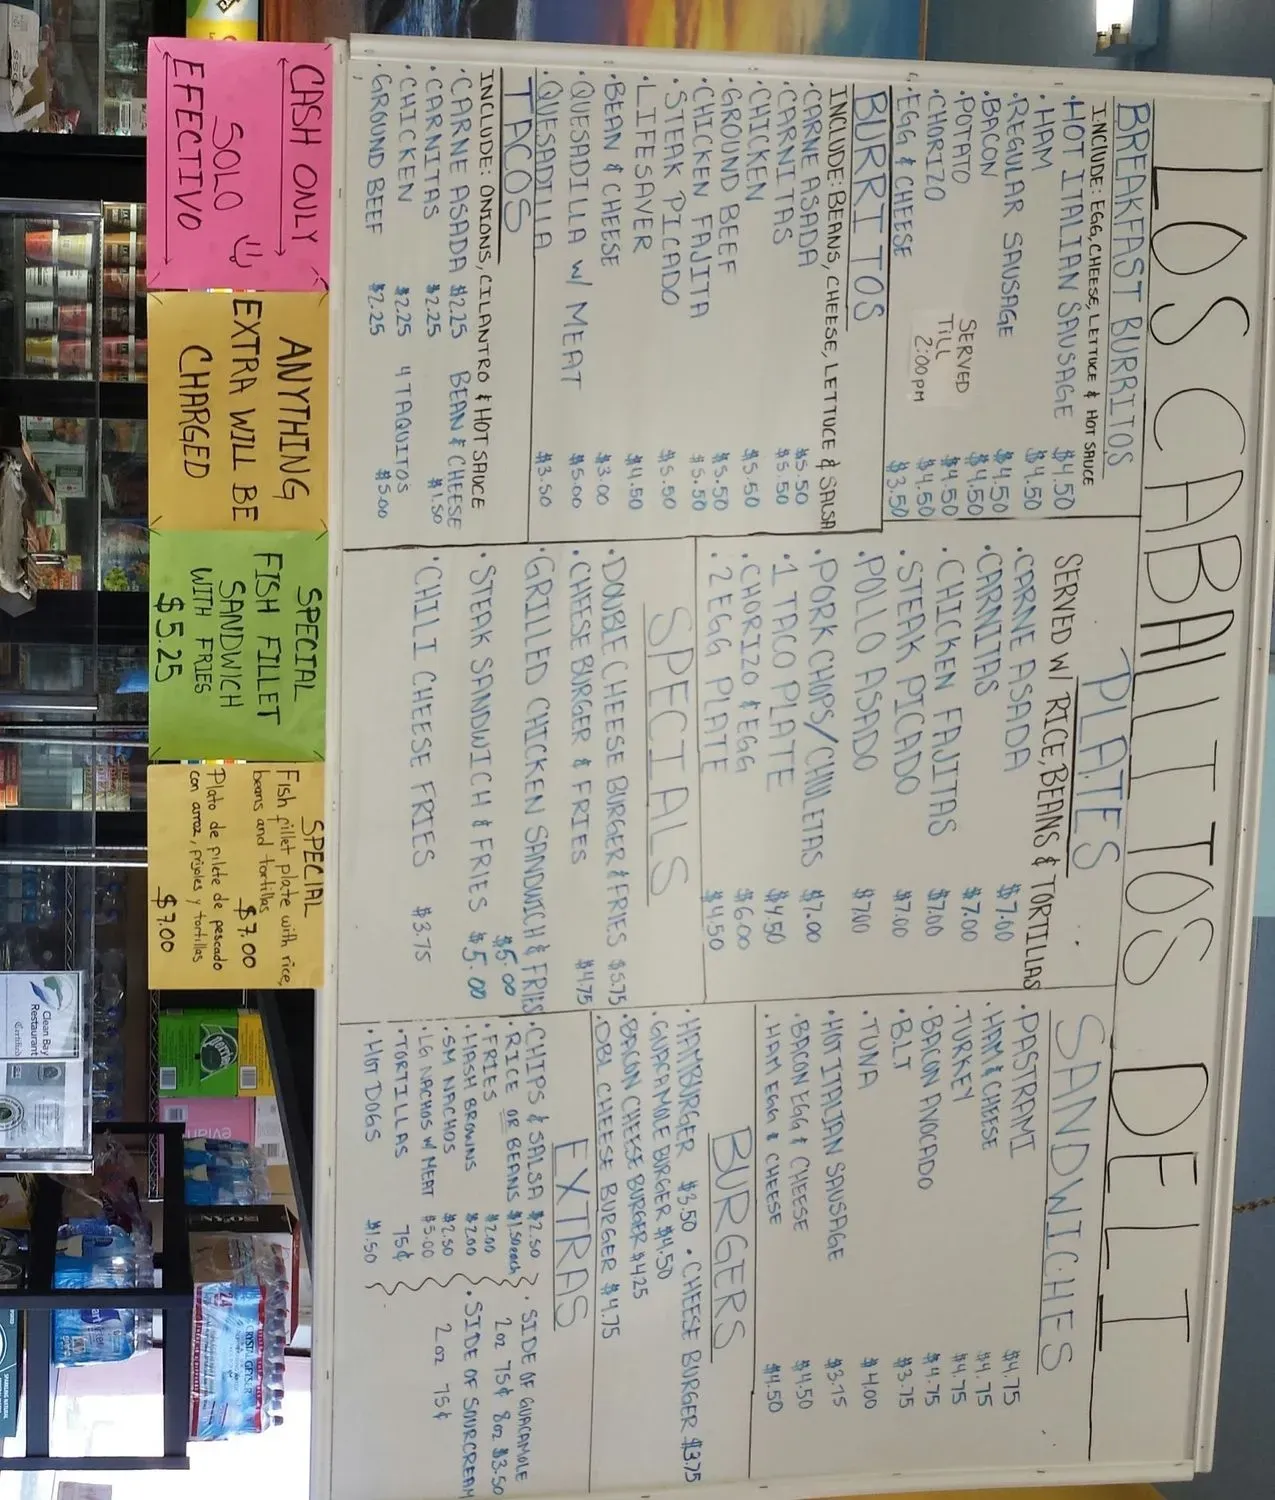 LOS CABALLITOS DELI
BREAKFAST BURRITOS
INCLUDE: EGG, CHEESE, LETTUCE & HOT SAUCE
• HOT ITALIAN SAUSAGE $4.50
• HAM $4.50
• REGULAR SAUSAGE $4.50
• BACON $4.50
• POTATO $4.50
• CHORIZO $4.50
• EGG & CHEESE $3.50
SERVED
TILL
2:00PM
BURRITOS
INCLUDE: BEANS, CHEESE, LETTUCE & SALSA
• CARNE ASADA $5.50
• CARNITAS $5.50
• CHICKEN $5.50
• GROUND BEEF $5.50
• CHICKEN FAJITA $5.50
• STEAK PICADO $5.50
• LIFESAVER $4.50
• BEAN & CHEESE $3.00
• QUESADILLA W/ MEAT $5.00
• QUESADILLA $3.50
TACOS
INCLUDE: ONIONS, CILANTRO & HOT SAUCE
• CARNE ASADA $2.25 BEAN & CHEESE
• CARNITAS $2.25 $1.50
• CHICKEN $2.25 4 TAQUITOS
• GROUND BEEF $2.25 $5.00
PLATES
SERVED W/ RICE, BEANS & TORTILLAS
• CARNE ASADA $7.00
• CARNITAS $7.00
• CHICKEN FAJITAS $7.00
• STEAK PICADO $7.00
• POLLO ASADO $7.00
• PORK CHOPS/CHULETAS $7.00
• 1 TACO PLATE $4.50
• CHORIZO & EGG $6.00
• 2 EGG PLATE $4.50
SPECIALS
• DOUBLE CHEESE BURGER & FRIES $5.75
• CHEESE BURGER & FRIES $4.75
• GRILLED CHICKEN SANDWICH & FRIES
$5.00
• STEAK SANDWICH & FRIES $5.00
• CHILI CHEESE FRIES $3.75
SANDWICHES
• PASTRAMI $4.75
• HAM & CHEESE $4.75
• TURKEY $4.75
• BACON AVOCADO $4.75
• BLT $3.75
• TUNA $4.00
• HOT ITALIAN SAUSAGE $3.75
• BACON EGG & CHEESE $4.50
• HAM EGG & CHEESE $4.50
BURGERS
• HAMBURGER $3.50 • CHEESE BURGER $3.75
• GUACAMOLE BURGER $4.50
• BACON CHEESE BURGER $4.25
• DBL CHEESE BURGER $4.75
EXTRAS
• CHIPS & SALSA $2.50
• RICE OR BEANS $1.50 each
• FRIES $2.00
• HASH BROWNS $2.00
• SM NACHOS $2.50
• LG NACHOS W MEAT $5.00
• TORTILLAS 75¢
• HOT DOGS $1.50
• SIDE OF GUACAMOLE
2oz 75¢ 8oz $3.50
• SIDE OF SOURCREAM
2oz 75¢
CASH ONLY
SOLO
EFECTIVO
ANYTHING
EXTRA WILL BE
CHARGED
SPECIAL
FISH FILLET
SANDWICH
WITH FRIES
$5.25
SPECIAL
Fish fillet plate with rice,
beans and tortillas
$7.00
Plato de filete de pescado
con arroz, frijoles y tortillas
$7.00
Clean Bay
Restaurant
Perrier
evian
24
CRYSTAL GEYSER